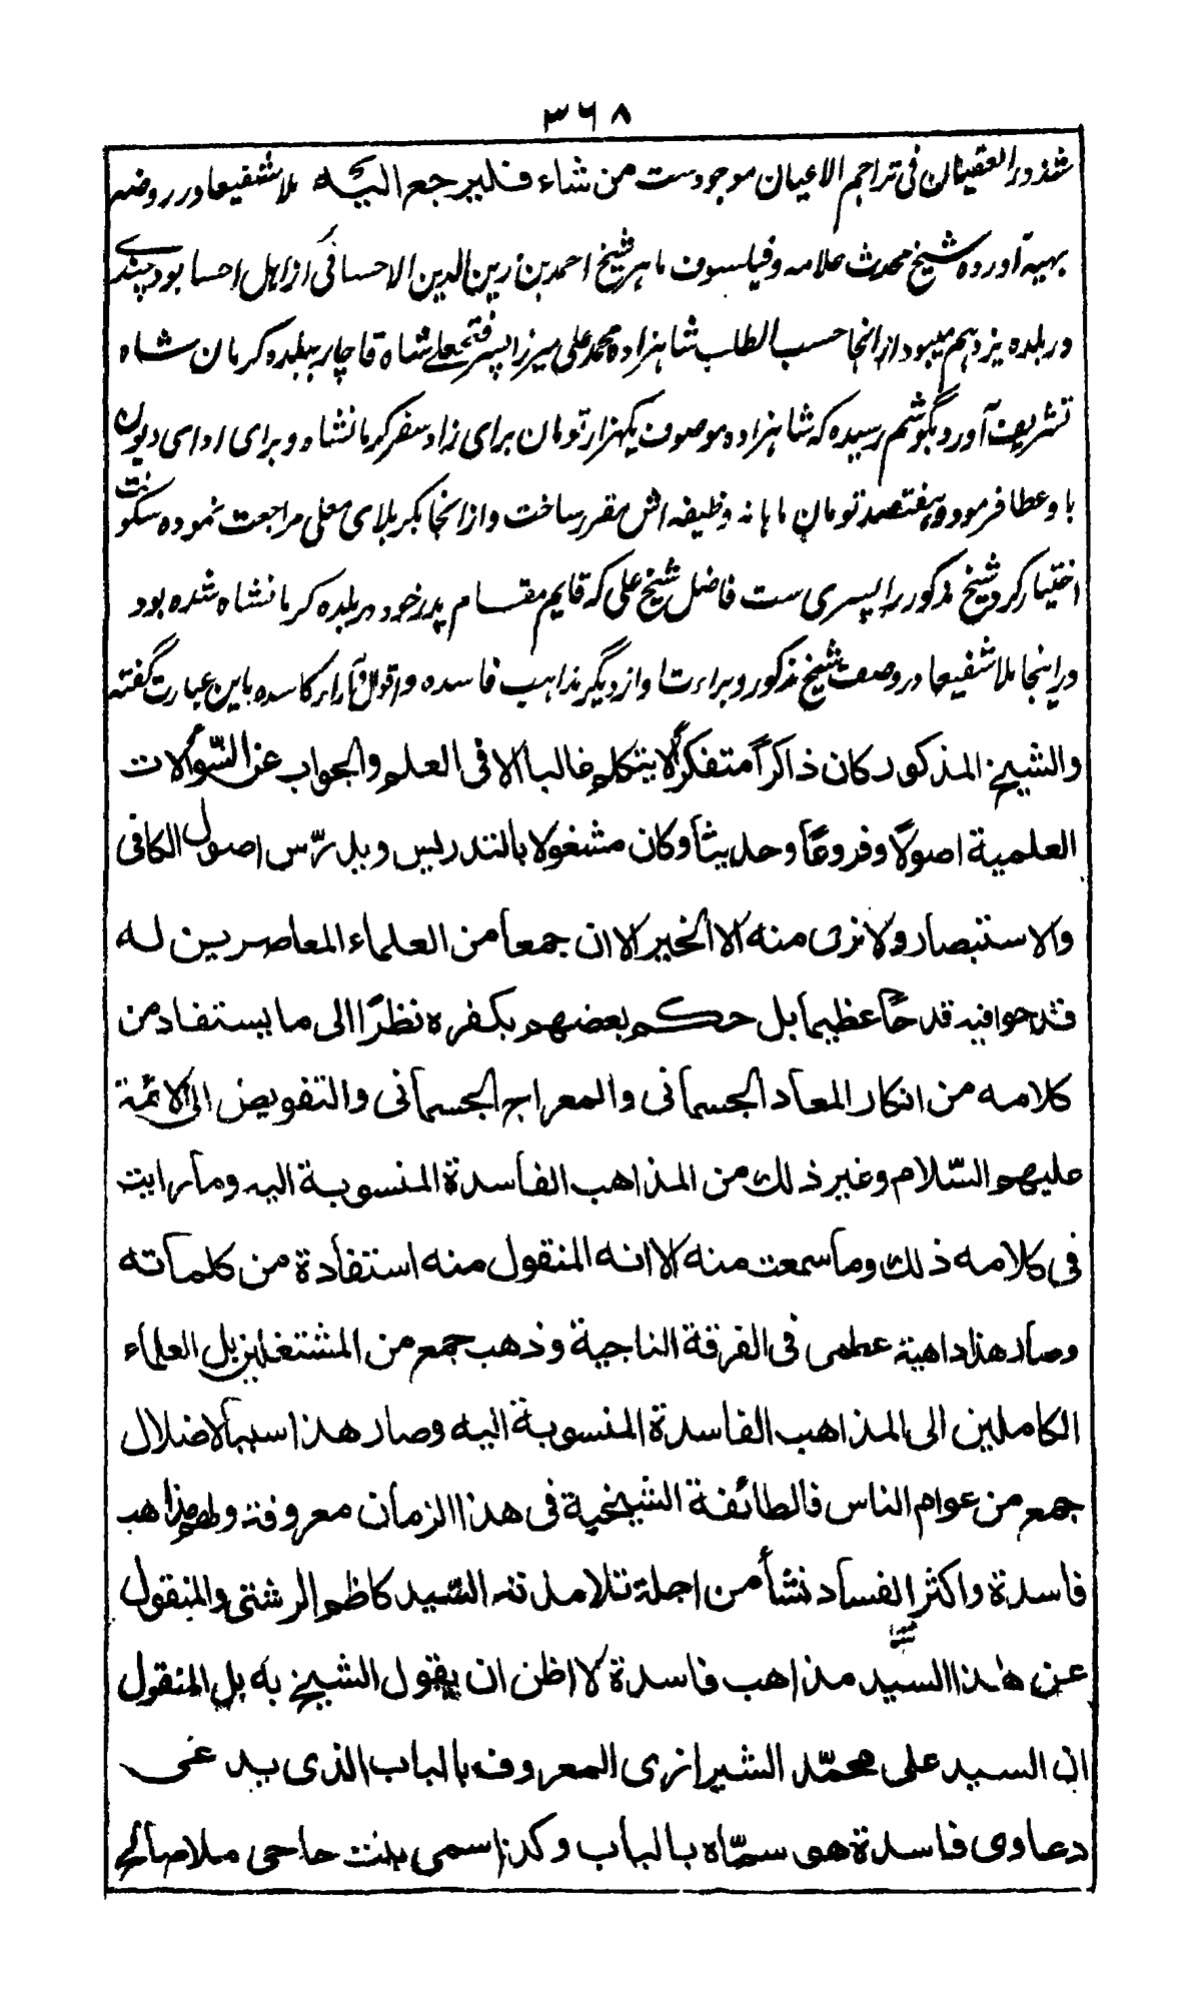 ۳۶۸
شذور العقیان فی تراجم الاعیان موجودست من شاء فلیرجع الیه ملا شفیعا در روضه
بهیه آورده شیخ محدث علامه و فیلسوف ماهر شیخ احمد بن زین الدین الاحسائی از اهل احسا بود چندے
در بلده یزد هم میبود از انجا حسب الطلب شاهزاده محمد علی میرزا پسر فتحعلے شاه قاچار ببلده کرمان شاه
تشریف آورد بگوشم رسیده که شاهزاده موصوف یکهزار تومان برای زاد سفر کرمانشاه و برای ادای دیون
باو عطا فرمود و هفتصد تومان ماهانه وظیفه اش مقرر ساخت و از انجا بکربلای معلی مراجعت نموده سکونت
اختیار کرد شیخ مذکور را پسری ست فاضل شیخ علی که قایم مقام پدر خود در بلده کرمانشاه شده بود
در اینجا ملا شفیعا در وصف شیخ مذکور و براءت او از دیگر مذاهب فاسده و اقوال و آراء کاسده باین عبارت گفته
والشیخ المذکور کان ذاکراً متفکراً لا یتکلم غالبا الا فی العلم والجواب عن السّؤالات
العلمیة اصولاً وفروعاً وحدیثاً وکان مشغولا بالتدریس ویدرّس اصول الکافی
والاستبصار ولا نری منه الا الخیر الا ان جمعاً من العلماء المعاصرین له
قدحوا فیه قدحاً عظیماً بل حکم بعضهم بکفره نظرًا الی ما یستفاد من
کلامه من انکار المعاد الجسمانی والمعراج الجسمانی والتفویض الی الائمة
علیهم السّلام وغیر ذلک من المذاهب الفاسدة المنسوبة الیه وما رایت
فی کلامه ذلک وما سمعت منه الا انه المنقول منه استفادة من کلماته
وصار هذا داهیة عظمی فی الفرقة الناجیة وذهب جمع من المشتغلین بل العلماء
الکاملین الی المذاهب الفاسدة المنسوبة الیه وصار هذا سبباً لاضلال
جمع من عوام الناس فالطائفة الشیخیة فی هذا الزمان معروفة ولهم مذاهب
فاسدة واکثر الفساد نشأ من اجلة تلامذته السّید کاظم الرشتی والمنقول
عن هذا السید مذاهب فاسدة لا اظن ان یقول الشیخ به بل المنقول
ان السید علی محمّد الشیرازی المعروف بالباب الذی یدعی
دعاوی فاسدة هو سمّاه بالباب وکذا سمی بنت حاجی ملا صالح